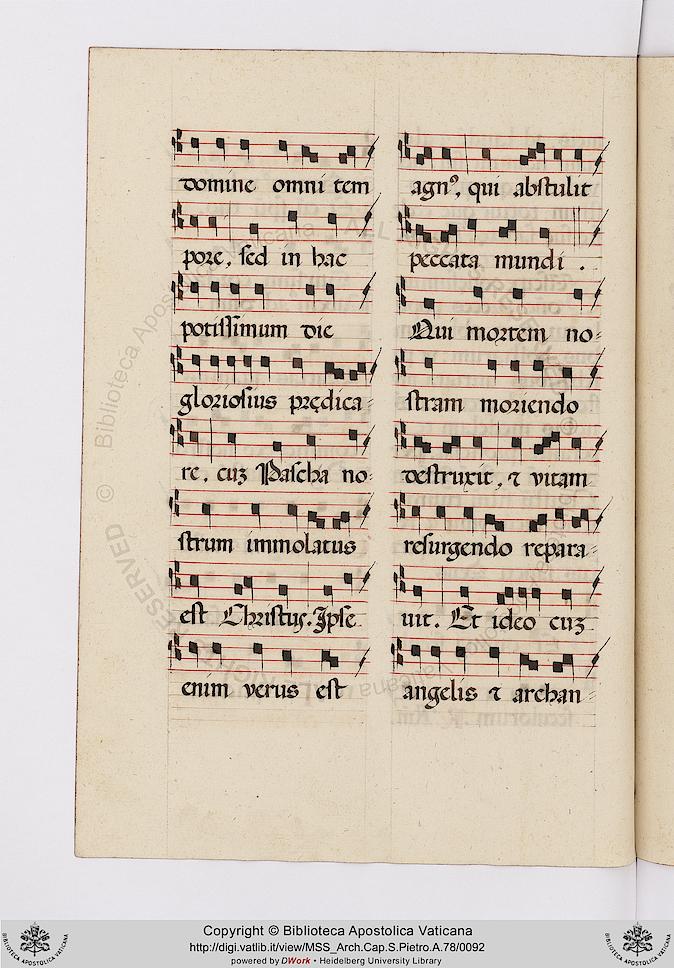 domine omni tem
pore, sed in hac
potissimum die
gloriosius prędica-
re, cuz Pascha no-
strum immolatus
est Christus. Ipse
enim verus est
agn⁹, qui abstulit
peccata mundi.
Qui mortem no-
stram moriendo
destruxit, ⁊ vitam
resurgendo repara-
uit. Et ideo cuz
angelis ⁊ archan-
© Biblioteca Apostolica Vaticana
ALL RIGHTS RESERVED
Copyright © Biblioteca Apostolica Vaticana
http://digi.vatlib.it/view/MSS_Arch.Cap.S.Pietro.A.78/0092
powered by DWork • Heidelberg University Library
BIBLIOTECA APOSTOLICA VATICANA
BIBLIOTECA APOSTOLICA VATICANA